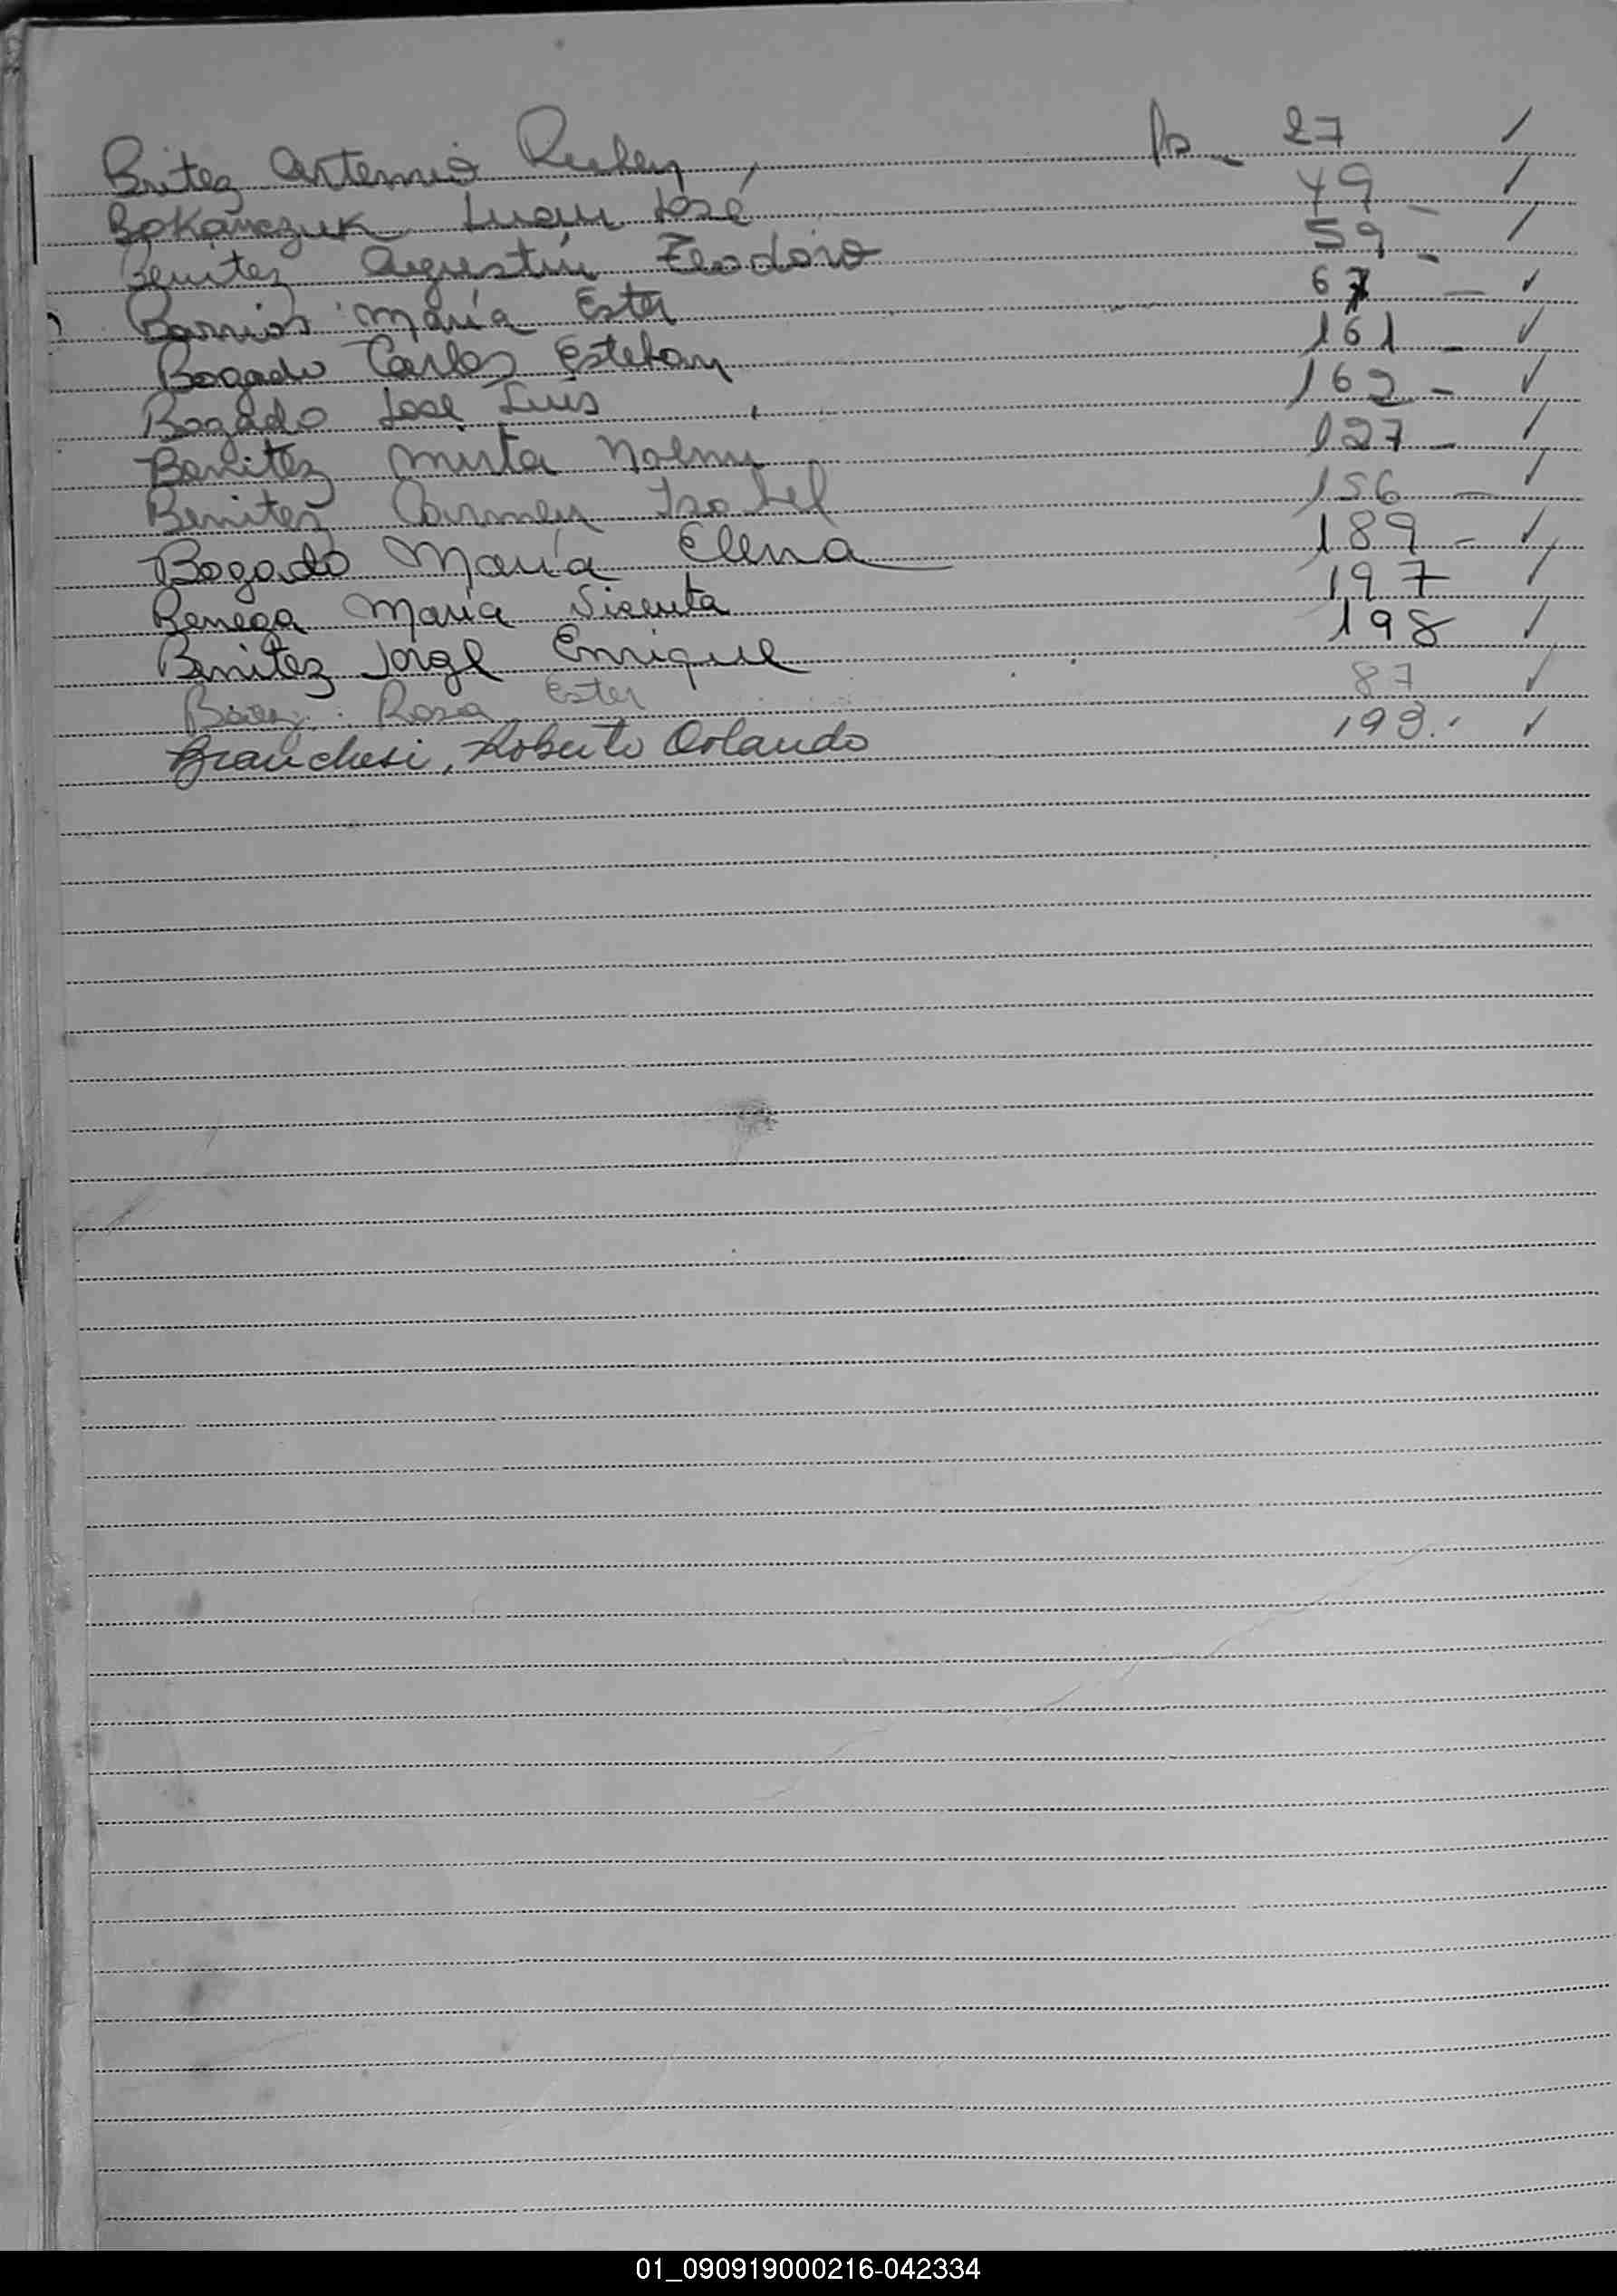 Britez Artemio Ruben Po - 27 ✓
Bokañczuk José 49 - ✓
Benitez Agustín Teodoro 59 - ✓
Barrios María Ester 67 - ✓
Bogado Carlos Esteban 161 - ✓
Bogado José Luis 162 - ✓
Benitez Mirta Noemi 127 - ✓
Benitez Carmen Isabel 156 - ✓
Bogado María Elena 189 - ✓
Benega María Vicenta 197 ✓
Benitez Jorge Enrique 198 ✓
Baez Rosa Ester 87 ✓
Branchesi, Roberto Orlando 193.- ✓
01_090919000216-042334